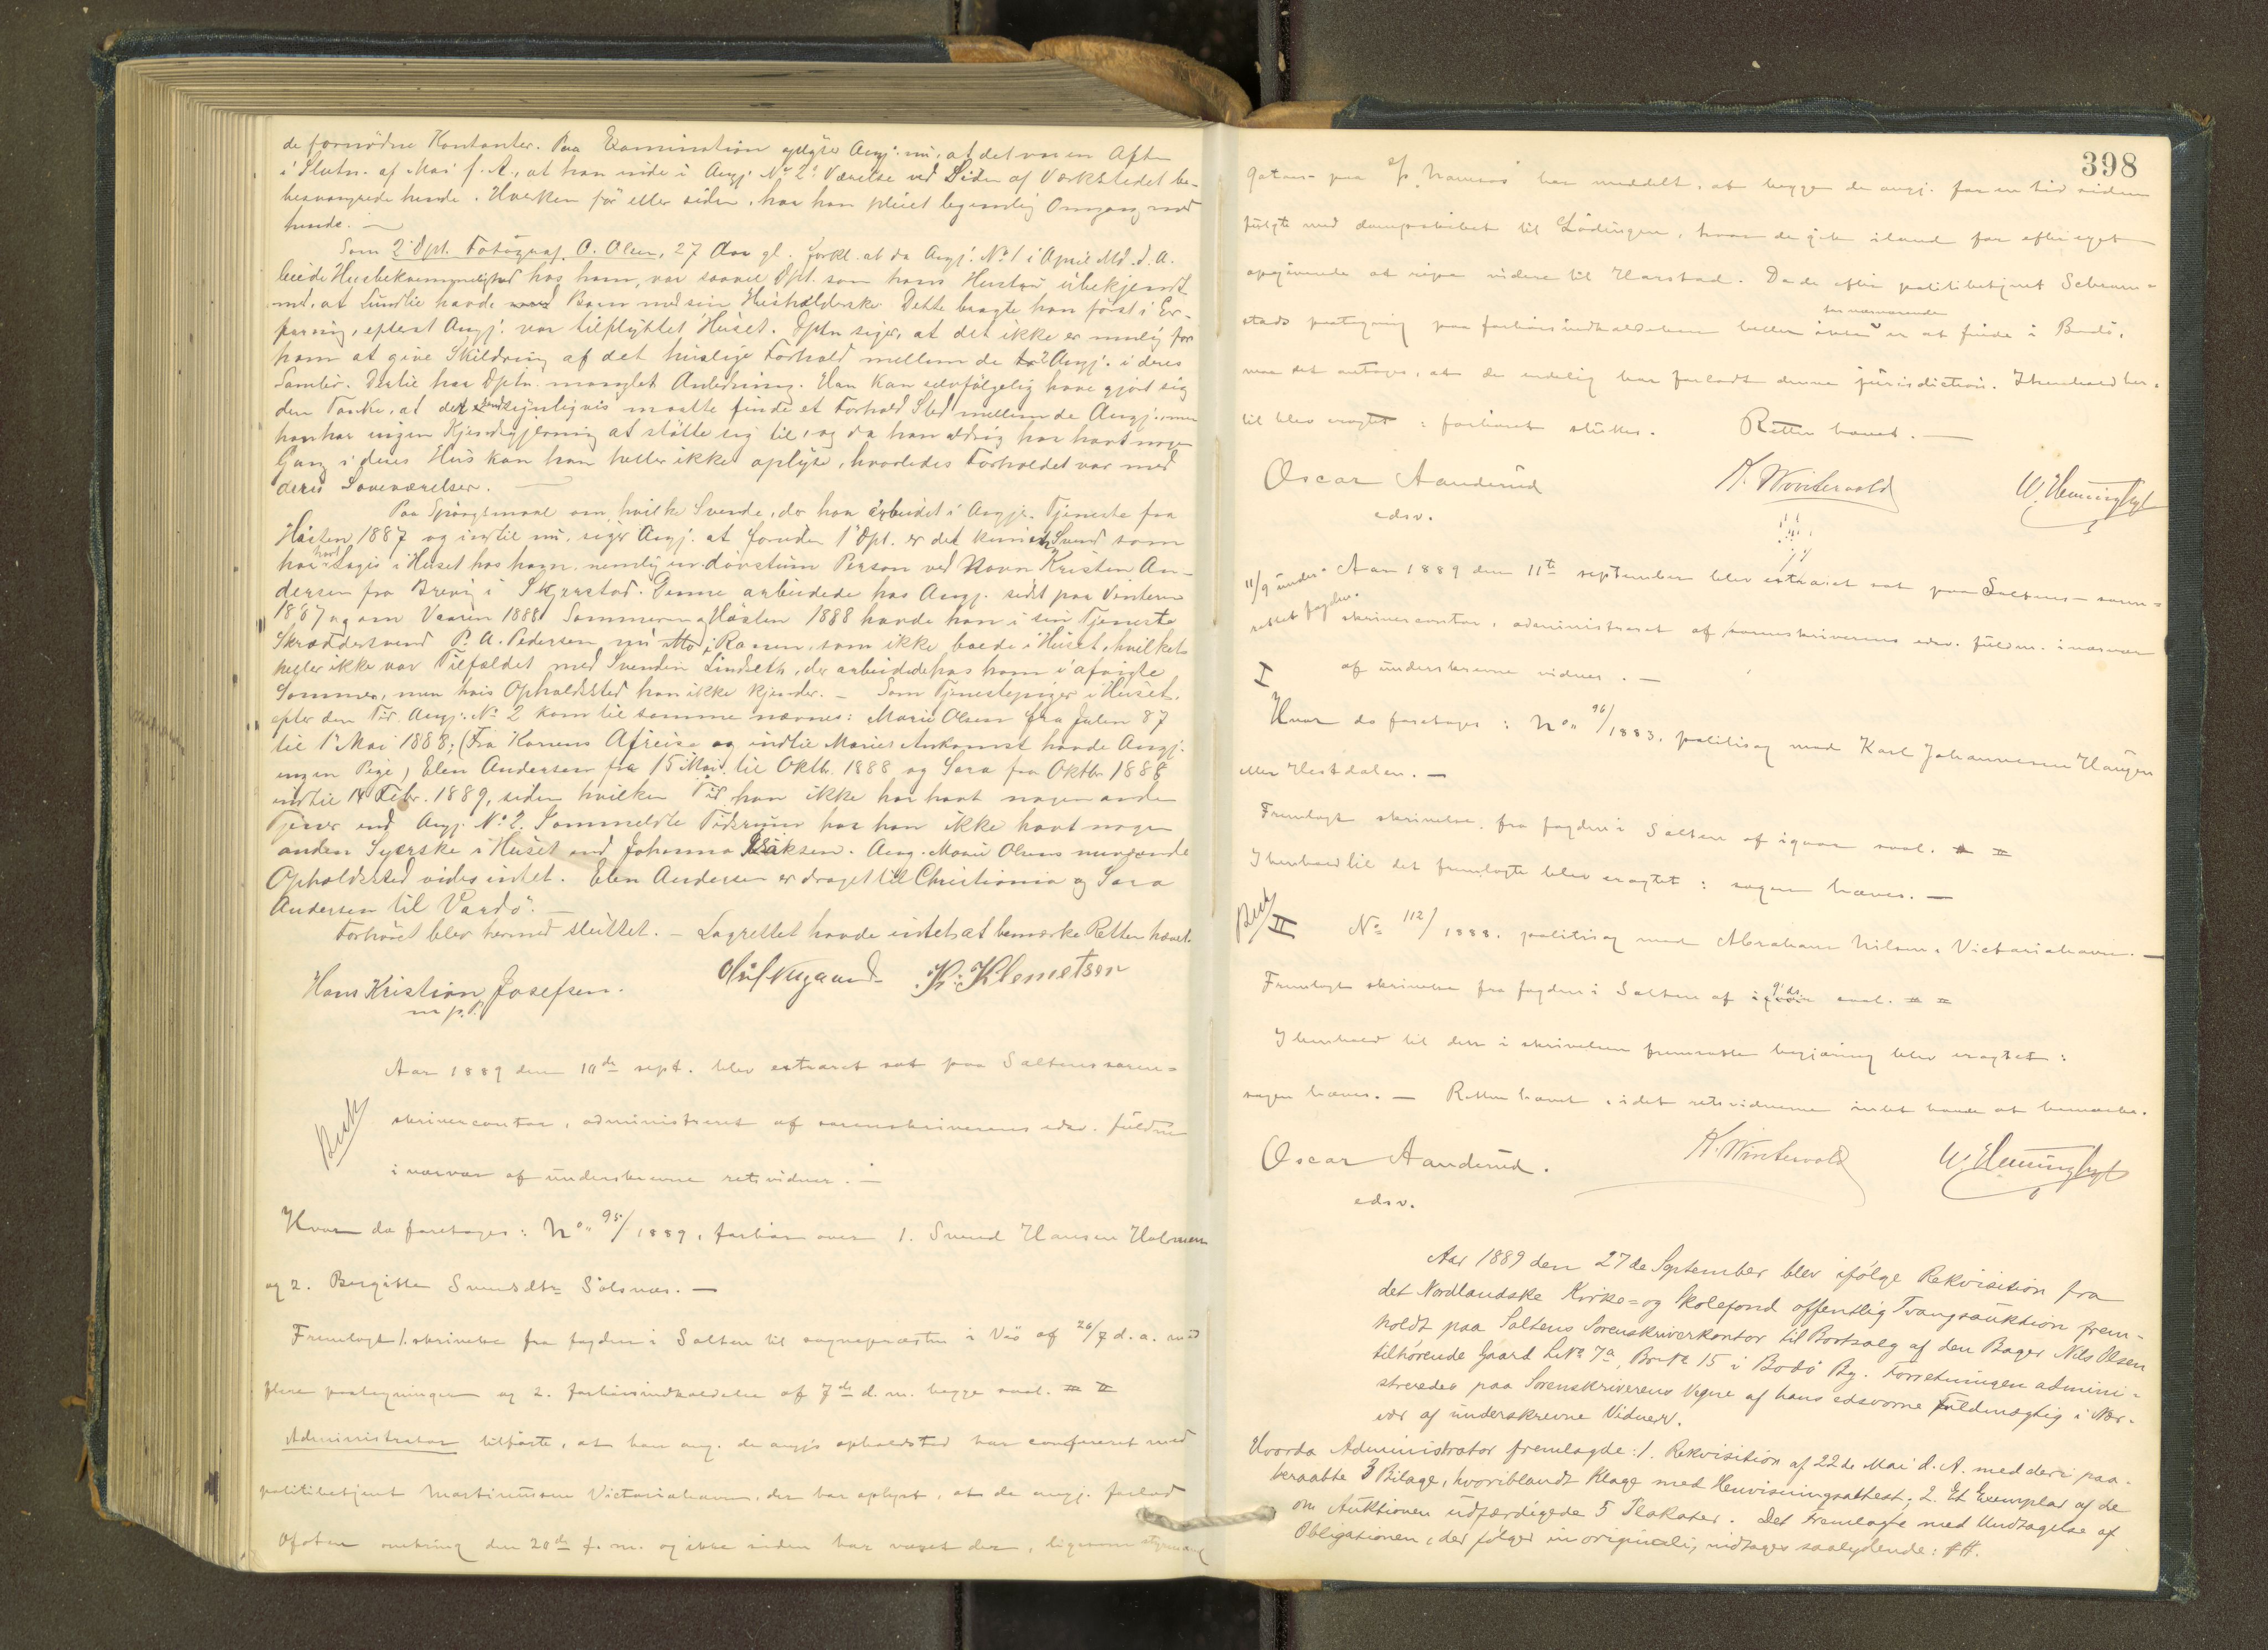 de fornödne Kontanter. Paa Examination oplyser Angj. nu, at det var en Aften
i Slutn. af Mai f. A., at han inde i Angj. No 2s Værelse ved Siden af Værkstedet be-
besvangrede hende. Hverken för eller siden har han pleiet legemlig Omgang med
hende. —
Som 2 Dpt. Fotograf O. Olsen, 27 Aar gl. forkl. at da Angj. No 1 i April Md. d. A.
leiede Husbekvemmelighed hos ham, var saavel Dpt. som hans Hustru ubekjendt
med, at Lundlie havde Barn med sin Husholderske. Dette bragte han först i Er-
faring, efterat Angj. var tilflyttet Huset. Dptn siger, at det ikke er mulig for
ham at give Skildring af det huslige Forhold mellem de 2 Angj. i deres
Samliv. Dertil har Dptn. manglet Anledning. Han kan selvfölgelig have gjort sig
den Tanke, at det sandsynligvis maatte finde et Forhold Sted mellem de Angj. men
han har ingen Kjendsgjerning at stötte sig til, og da han aldrig har havt nogen
Gang i deres Hus kan han heller ikke oplyse, hvorledes Forholdet var med
deres Soveværelser. —
Paa Spörgsmaal om hvilke Svende, der har arbeidet i Angjs. Tjeneste fra
Hösten 1887 og indtil nu, siger Angj. at foruden 1 Dpt. er det kun en Svend som
har havt Logis i Huset hos ham, nemlig en dövstum Person ved Navn Kristen An-
dersen fra Brevig i Skjerstad. Denne arbeidede hos Angj. sidst paa Vinteren
1887 og om Vaaren 1888. Sommeren og Hösten 1888 havde han i sin Tjeneste
Skræddersvend P. A. Pedersen, nu Mo i Ranen, som ikke boede i Huset, hvilket
heller ikke var Tilfældet med Svenden Lindseth, der arbeidede hos ham i afvigte
Sommer, men hvis Opholdssted han ikke kjender. — Som Tjenestepiger i Huset,
efter den Tid Angj. No 2 kom til samme nævnes: Marie Olsen fra Julen 87
til 1 Mai 1888; (Fra Karens Afreise og indtil Maries Ankomst havde Angj.
ingen Pige) Elen Andersen fra 15 Mai til Oktbr. 1888 og Sara fra Oktbr 1888
indtil 14 Febr. 1889, siden hvilken Tid han ikke har havt nogen anden
Tjener end Angj. No 2. I ommeldte Tidsrum har han ikke havt nogen
anden Syerske i Huset end Johanna Isaksen. Ang. Marie Olsens nuværende
Opholdssted vides intet. Elen Andersen er draget til Christiania og Sara
Andersen til Vardö. —
Forhöret blev hermed sluttet. — Lagrettet havde intet at bemærke. Retten hævet.
Hans Kristian Josefsen. Oluf Nygaard. K. Klemetsen
m. p. P.
Aar 1889 den 10de sept. blev extraret sat paa Saltens soren=
skrivercontor, administreret af sorenskriverens edsv. fuldm
i nærvær af underskrevne retsvidner. —
Hvor da foretages: No 95/1889, forhör over 1. Svend Hansen Holmen
og 2. Bergitte Svendsdtr Solsnæs. —
Fremlagt 1. skrivelse fra fogden i Salten til sognepresten i Vaö af 26/7 d. a. med
flere paategninger og 2. forhörsindkaldelse af 7de d. m. begge saal.
Administrator tilförte, at han ang. de angjs opholdsted har confereret med
politibetjent Martinussen Victoriahavn, der har oplyst, at de angj. forlod
Ofoten omkring den 20de f. m. og ikke siden har været der, ligesom styrmand
398
Gotaas paa har meddelt, at begge de angj. for en tid siden
fulgte med dampskibet til Lödingen, hvor de gik iland for efter eget
opgivende at reise videre til Harstad. Da de efter politibetjent Schram-
for nærværende
stads paategning paa forhörsindkaldelsen heller ikke er at finde i Bodö,
maa det antages, at de endelig har forladt denne jurisdiction. I henhold her-
til blev eragtet: forhöret sluttes. Retten hævet. —
Oscar Aanderud K. Winterwold W. Hemingbyt
edsv.
11/9 under-
rettet fogden.
Aar 1889 den 11te september blev extraret sat paa Saltens soren=
skrivercontor, administreret af sorenskriverens edsv. fuldm. i nærvær
af underskrevne vidner. —
I
Hvor da foretages: No 96/1883, politisag mod Karl Johannesen Haugen
eller Hestdalen. —
Fremlagt skrivelse fra fogden i Salten af igaar saal.
I henhold til det fremlagte blev eragtet: sagen hæves. —
Besk II
No 112/1888, politisag mod Abraham Nilsen, Victoriahavn. —
Fremlagt skrivelse fra fogden i Salten af 9 ds. saal.
I henhold til den i skrivelsen fremsatte begjæring blev eragtet:
sagen hæves. — Retten hævet, idet retsvidnerne intet havde at bemærke.
Oscar Aanderud. K. Winterwold W. Hemingbyt
edsv.
Aar 1889 den 27de September blev ifölge Rekvisition fra
det Nordlandske Kirke= og Skolefond offentlig Tvangsauktion frem-
holdt paa Saltens Sorenskriverkontor til Bortsalg af den Bager Nils Olsen
tilhörende Gaard LNo 7a, BrNo 15 i Bodö By. Forretningen admini-
streredes paa Sorenskriverens Vegne af hans edsvorne Fuldmægtig i Nær-
vær af underskrevne Vidner.
Hvorda Administrator fremlagde: 1. Rekvisition af 22de Mai d. A. med deri paa-
beraabte 3 Bilage, hvoriblandt Klage med Henvisningsattest; 2. Et Exemplar af de
om Auktionen udfærdigede 5 Plakater. Det Fremlagte med Undtagelse af
Obligationen, der fölger in originali, indtages saalydende: